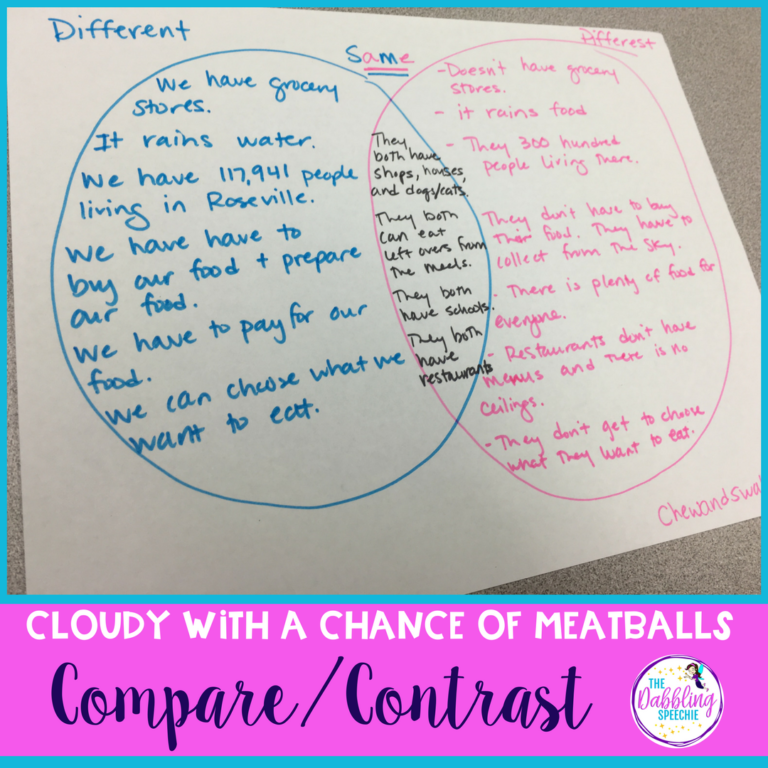 Different
Same
Different
We have grocery
stores.
It rains water.
We have 117,941 people
living in Roseville.
We have have to
buy our food + prepare
our food.
We have to pay for our
food.
We can choose what we
want to eat.
They
both have
shops, houses,
and dogs/cats.
They both
can eat
left overs from
the meals.
They both
have schools.
They both
have
restaurants
- Doesn't have grocery
stores.
- it rains food
- They 300 hundred
people living there.
They don't have to buy
their food. They have to
collect from the sky.
- There is plenty of food for
everyone.
- Restaurants don't have
menus and there is no
ceilings.
- They don't get to choose
what they want to eat.
Chewandswal
CLOUDY WITH A CHANCE OF MEATBALLS
Compare/Contrast
THE
Dabbling
SPEECHIE